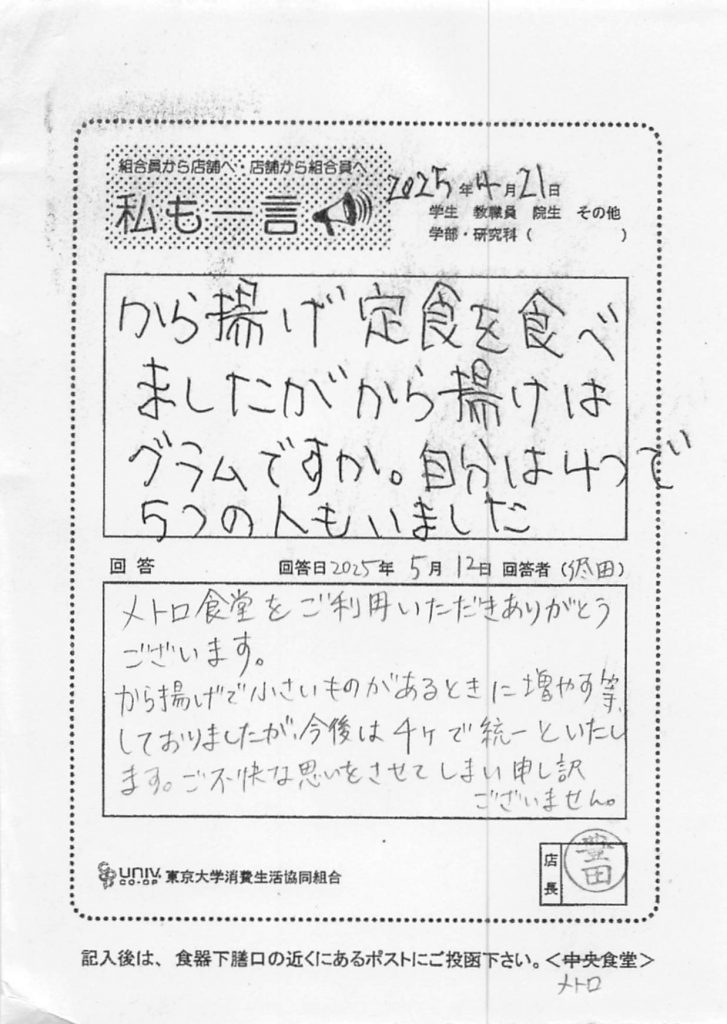 組合員から店舗へ・店舗から組合員へ
私も一言
2025年4月21日
学生 教職員 院生 その他
学部・研究科（ ）
から揚げ定食を食べ
ましたがから揚けは
グラムですか。自分は4つで
5つの人もいました
回答 回答日2025年5月12日 回答者（ 田）
メトロ食堂をご利用いただきありがとう
ございます。
から揚げで小さいものがあるときに増やす等、
しておりましたが、今後は4ヶで統一といたし
ます。ご不快な思いをさせてしまい申し訳
ございません。
UNIV. CO-OP 東京大学消費生活協同組合
店長
豊田
記入後は、食器下膳口の近くにあるポストにご投函下さい。＜中央食堂＞
メトロ